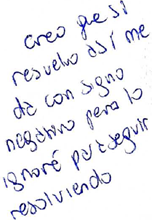 creo que si
resuelvo así me
da con signo
negativo pero lo
ignoré por seguir
resolviendo